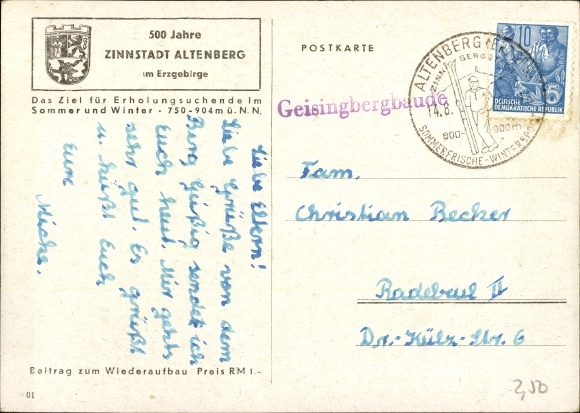 500 Jahre
ZINNSTADT ALTENBERG
im Erzgebirge
Das Ziel für Erholungsuchende im
Sommer und Winter · 750-904m ü. N. N.
Liebe Eltern!
Liebe Grüße von dem
Berg Güßig sendet ich
Euch heut. Mir gehts
sehr gut. Es grüßt
u. küßt Euch
Eure
Micha.
Beitrag zum Wiederaufbau Preis RM 1.-
01
POSTKARTE
Geisingbergbaude
ALTENBERG (ERZGEB
ZINN
BERGB
14.8.
800-
900m
SOMMERFRISCHE-WINTERSP
10
5
DEUTSCHE
DEMOKRATISCHE REPUBLIK
Fam.
Christian Becker
Radebeul II
Dr.-Külz-Str. 6
2,50